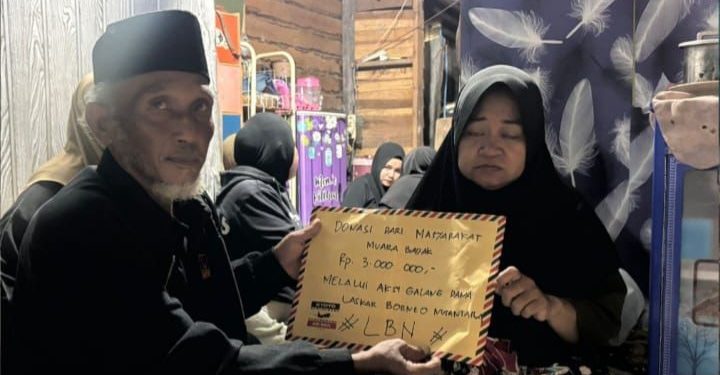 DONASI DARI MASYARAKAT
MUARA BADAK
Rp. 3.000 000,-
MELALUI AKSI GALANG DANA
LASKAR BORNEO NUSANTARA
# LBN #